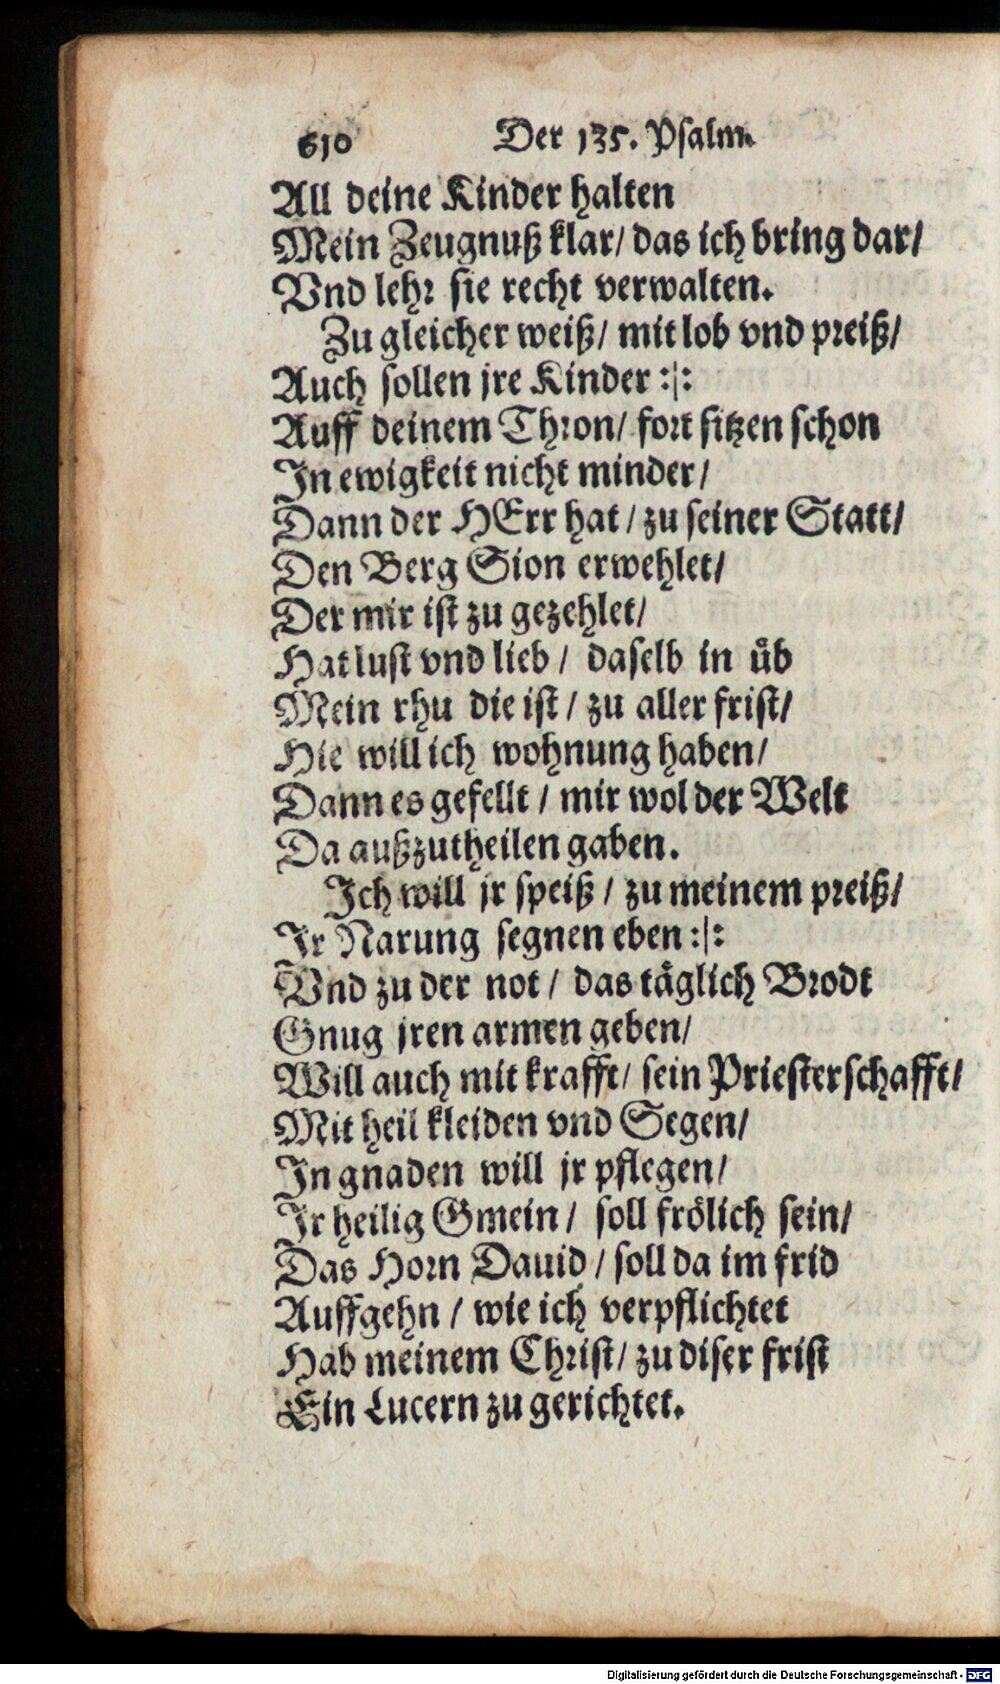 610 Der 135. Psalm.
All deine Kinder halten
Mein Zeugnuß klar/ das ich bring dar/
Vnd lehr sie recht verwalten.
Zu gleicher weiß/ mit lob vnd preiß/
Auch sollen jre Kinder :|:
Auff deinem Thron/ fort sitzen schon
In ewigkeit nicht minder/
Dann der HErr hat/ zu seiner Statt/
Den Berg Sion erwehlet/
Der mir ist zu gezehlet/
Hat lust vnd lieb/ daselb in üb
Mein rhu die ist/ zu aller frist/
Hie will ich wohnung haben/
Dann es gefellt/ mir wol der Welt
Da außzutheilen gaben.
Ich will jr speiß/ zu meinem preiß/
Ir Narung segnen eben :|:
Vnd zu der not/ das täglich Brodt
Gnug jren armen geben/
Will auch mit krafft/ sein Priesterschafft/
Mit heil kleiden vnd Segen/
In gnaden will jr pflegen/
Ir heilig Gmein/ soll frölich sein/
Das Horn Dauid/ soll da im frid
Auffgehn/ wie ich verpflichtet
Hab meinem Christ/ zu diser frist
Ein Lucern zu gerichtet.
Digitalisierung gefördert durch die Deutsche Forschungsgemeinschaft - DFG